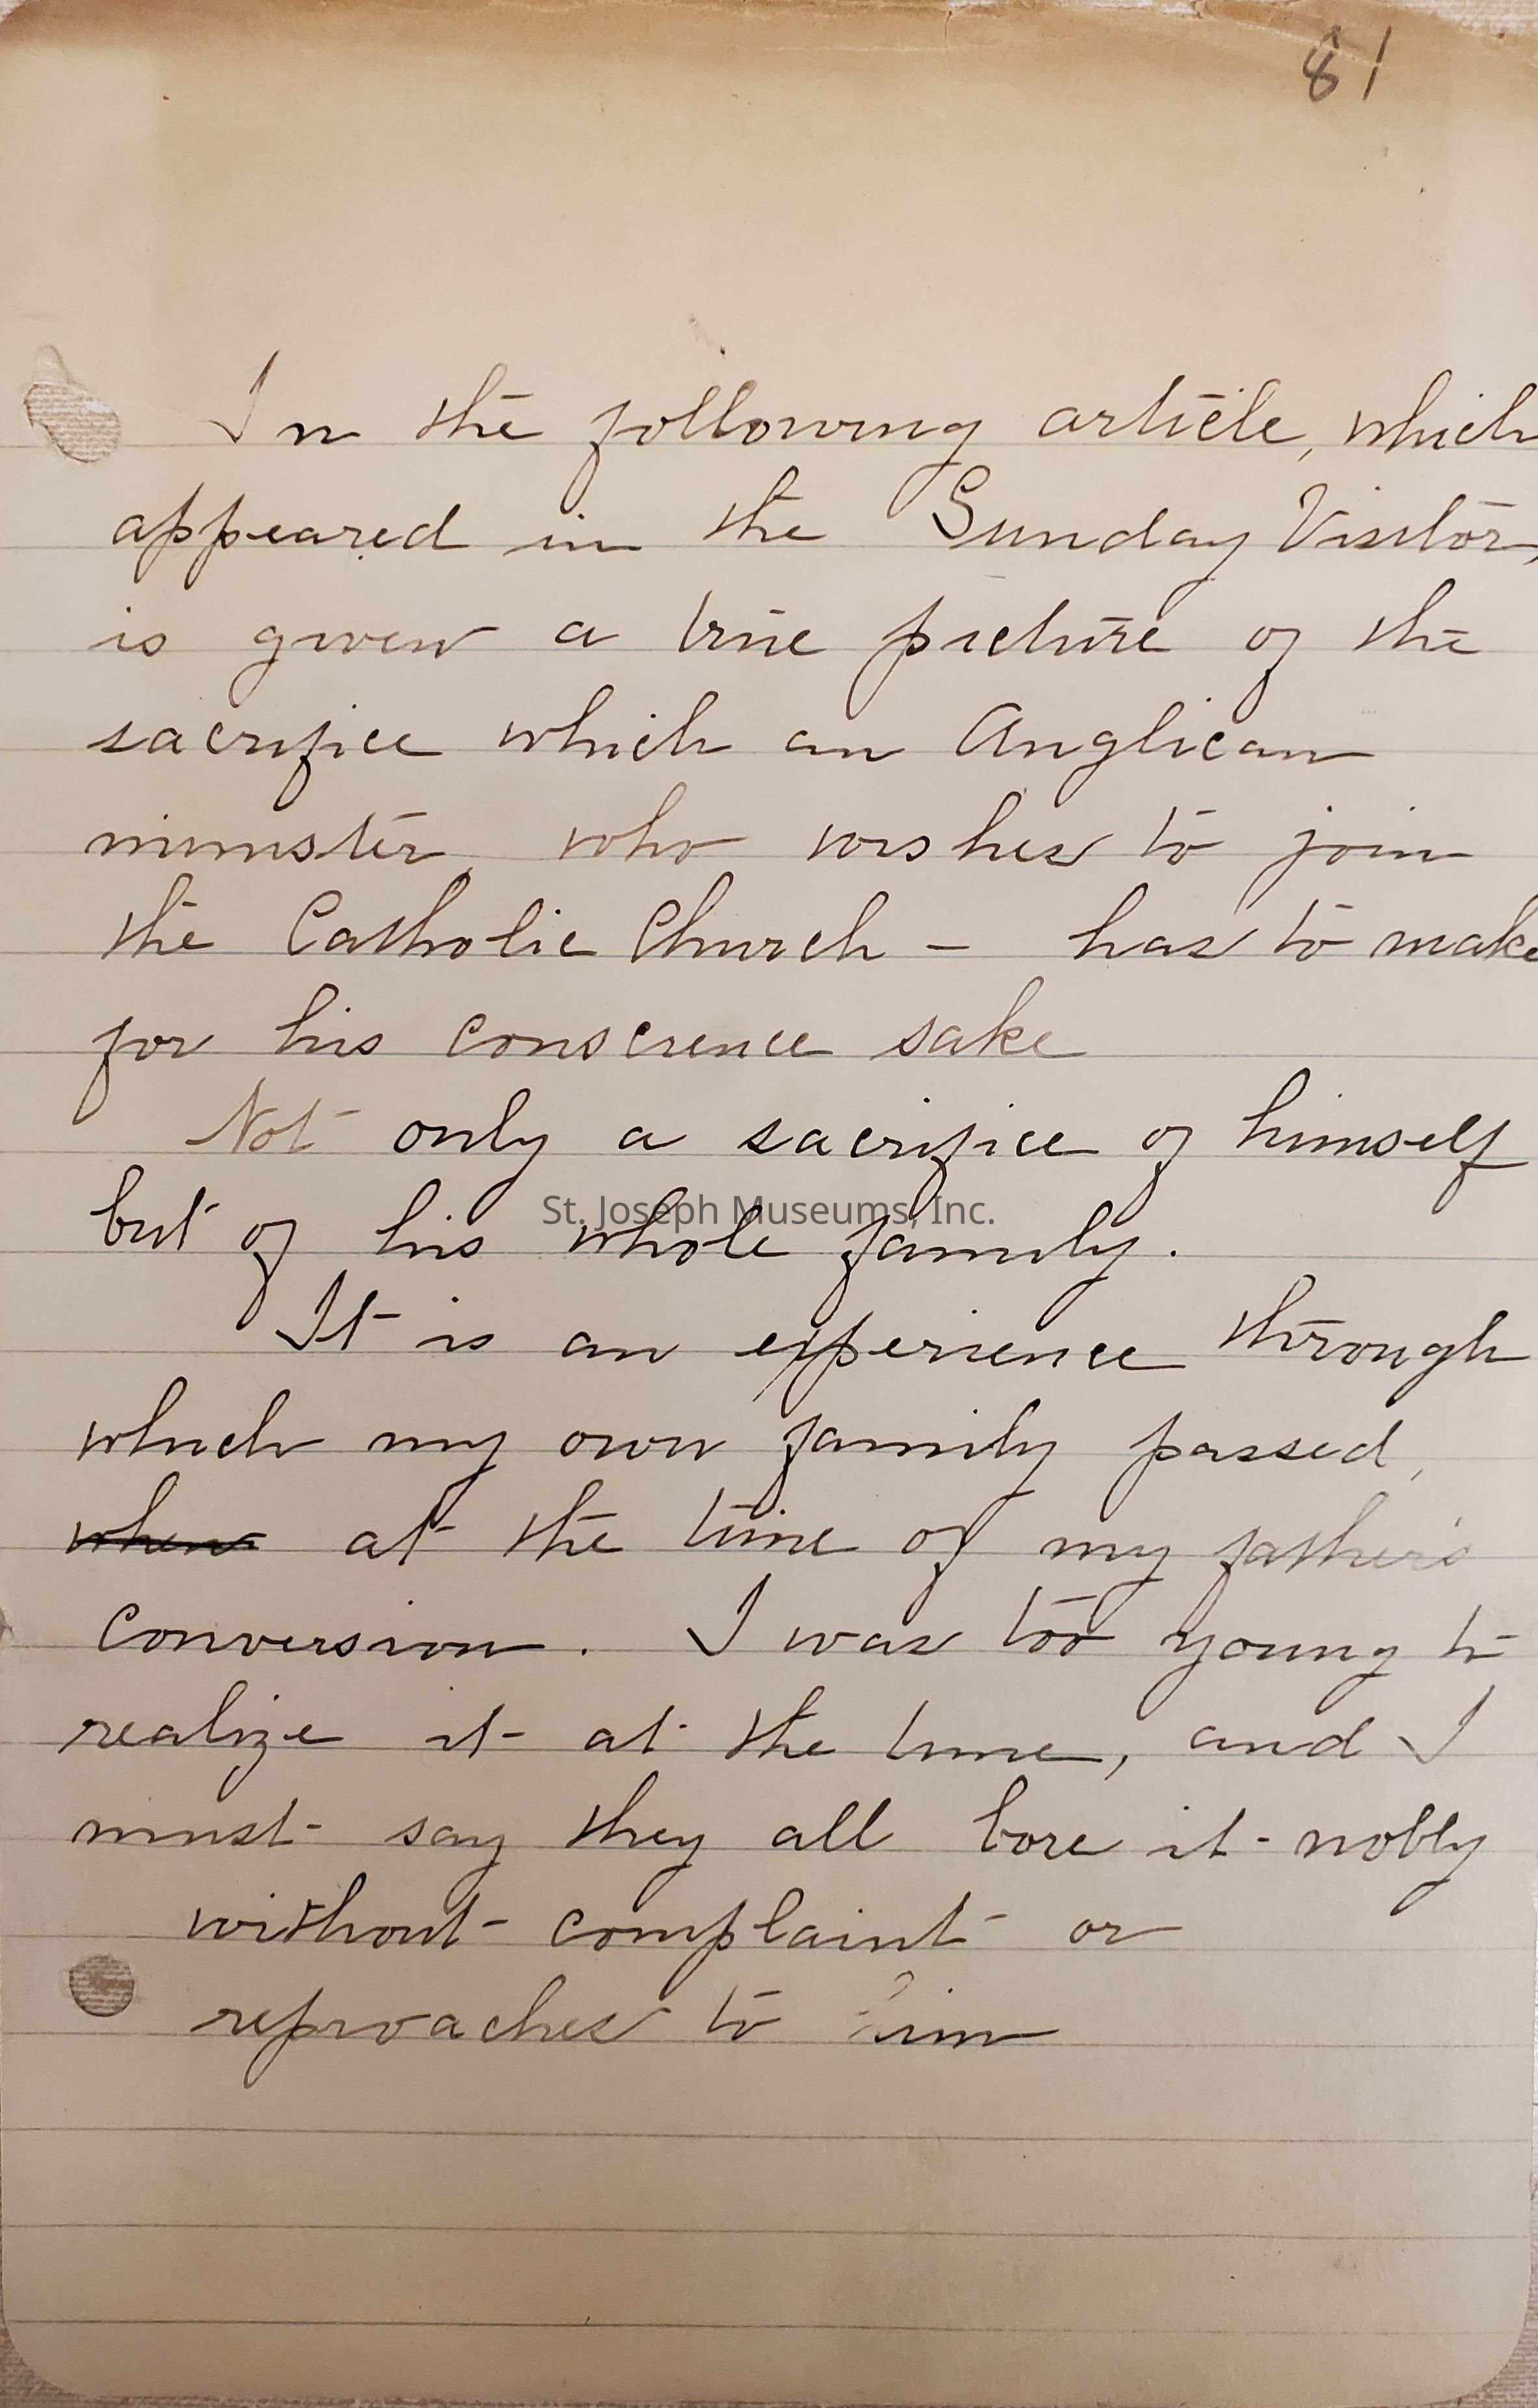 81
In the following article, which
appeared in the Sunday Visitor,
is given a true picture of the
sacrifice which an Anglican
minister, who wishes to join
the Catholic Church – has to make
for his conscience sake
Not only a sacrifice of himself
but of his whole family.
St. Joseph Museums, Inc.
It is an experience through
which my own family passed,
when at the time of my father's
Conversion. I was too young to
realize it at the time, and I
must say they all bore it nobly
without complaint or
reproaches to him